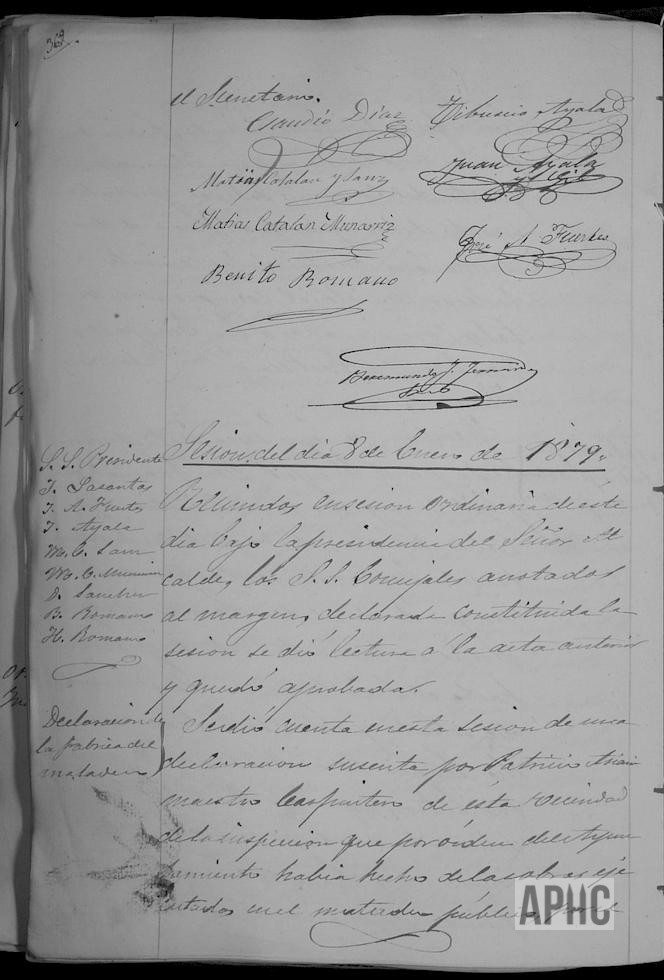 368
El Secretario.
Claudio Diaz
Tiburcio Ayala
Matias Catalan y Sanz
Juan Ayala
y Gil
Matias Catalan Munarriz
José A Fuertes
Benito Romano
Sesion del dia 8 de Enero de 1879.
S. S. Presidente
J. Lasantas
J. A. Fuertes
T. Ayala
M. C. Sanz
M. C. Munarriz
D. Sanchez
B. Romano
H. Romano
Reunidos en sesion ordinaria de éste
dia bajo la presidencia del Señor Al
calde, los S. S. Concejales anotados
al margen, declarada constituida la
sesion se dió lectura á la acta anterior
y quedó aprobada.
Declaracion de
la fabrica del
matadero
Se dió cuenta en esta sesion de una
declaracion suscrita por Patricio
maestro Carpintero de ésta vecindad
de la inspeccion que por órden del Ayun
tamiento habia hecho de las obras eje
cutadas en el matadero público, por
APHC